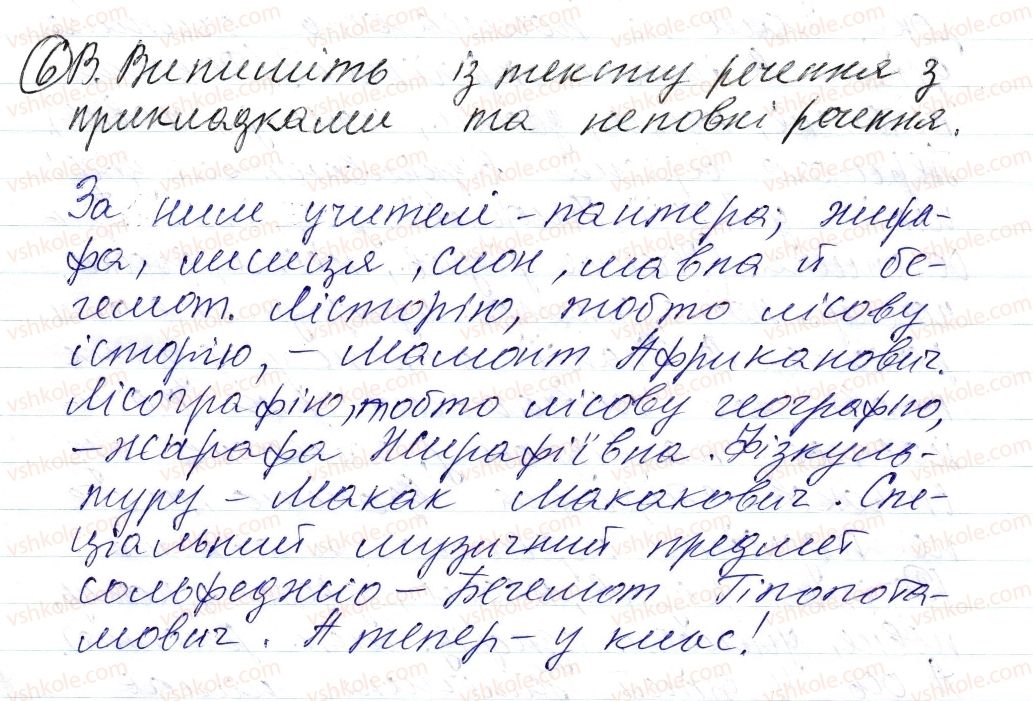 6 В. Випишіть із тексту речення з
прикладками та неповні речення.
За ним учителі – пантера, жира-
фа, лисиця, слон, мавпа й бе-
гемот. Лісторію, тобто лісову
історію, – Мамонт Африканович.
Лісографію, тобто лісову географію,
– Жарафа Жирафіївна. Фізкуль-
туру – Макак Макакович. Спе-
ціальний музичний предмет
сольфеджіо – Бегемот Гіпопота-
мович. А тепер – у клас!